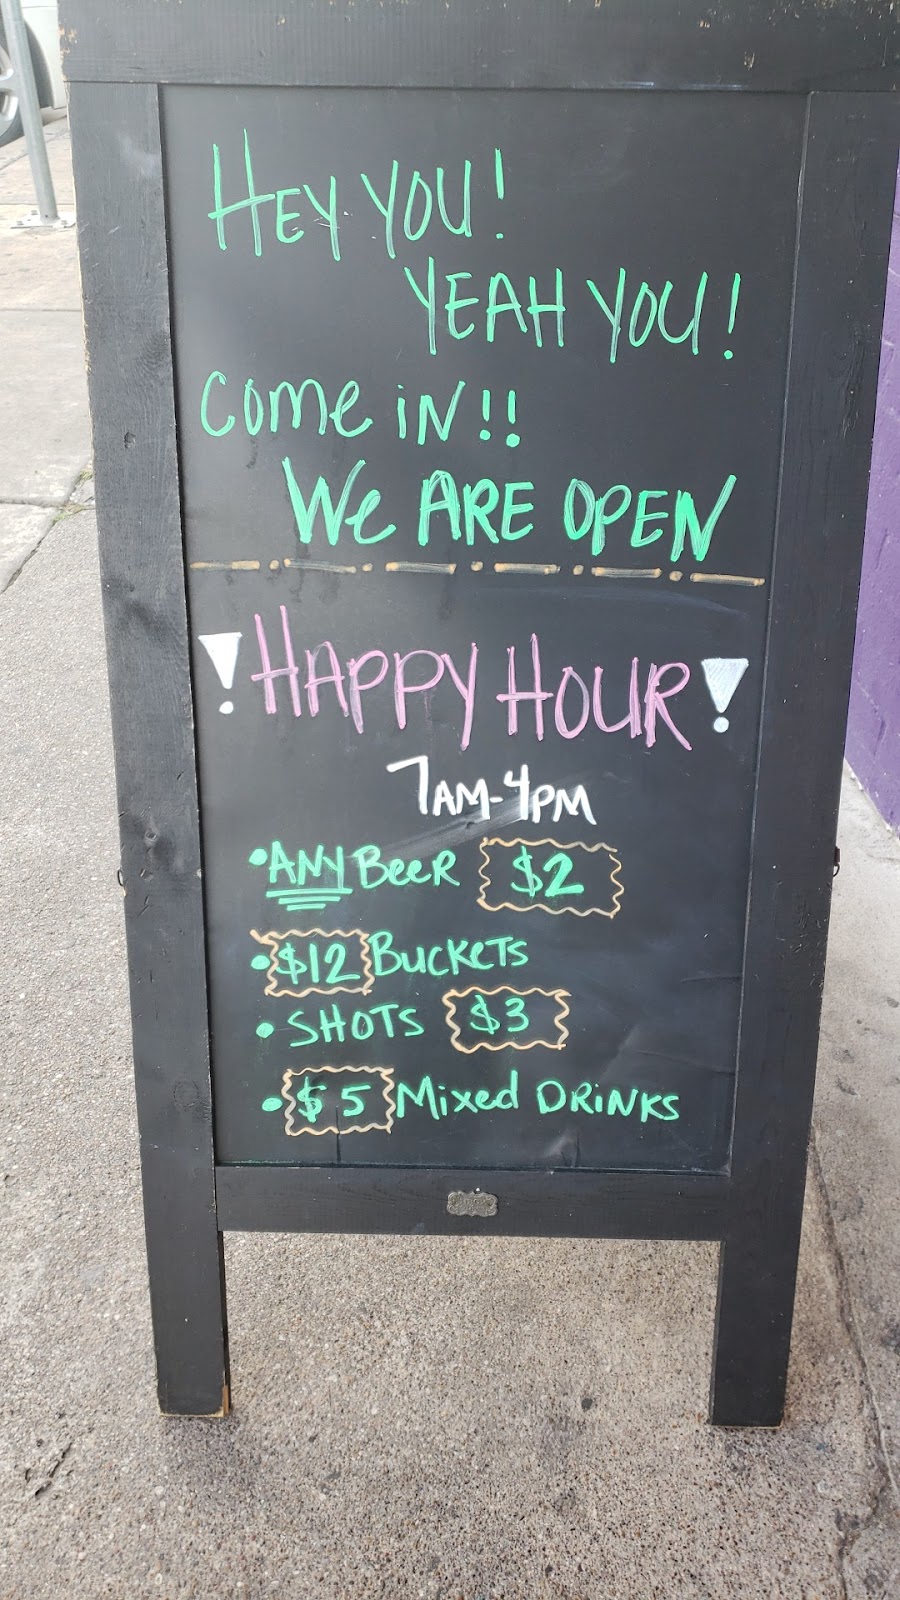 HEY YOU!
YEAH YOU!
Come iN!!
We ARE OPEN
! HAPPY HOUR !
7AM-4PM
• ANY BeeR $2
• $12 BUCKETS
• SHOTS $3
• $5 Mixed DRiNKS